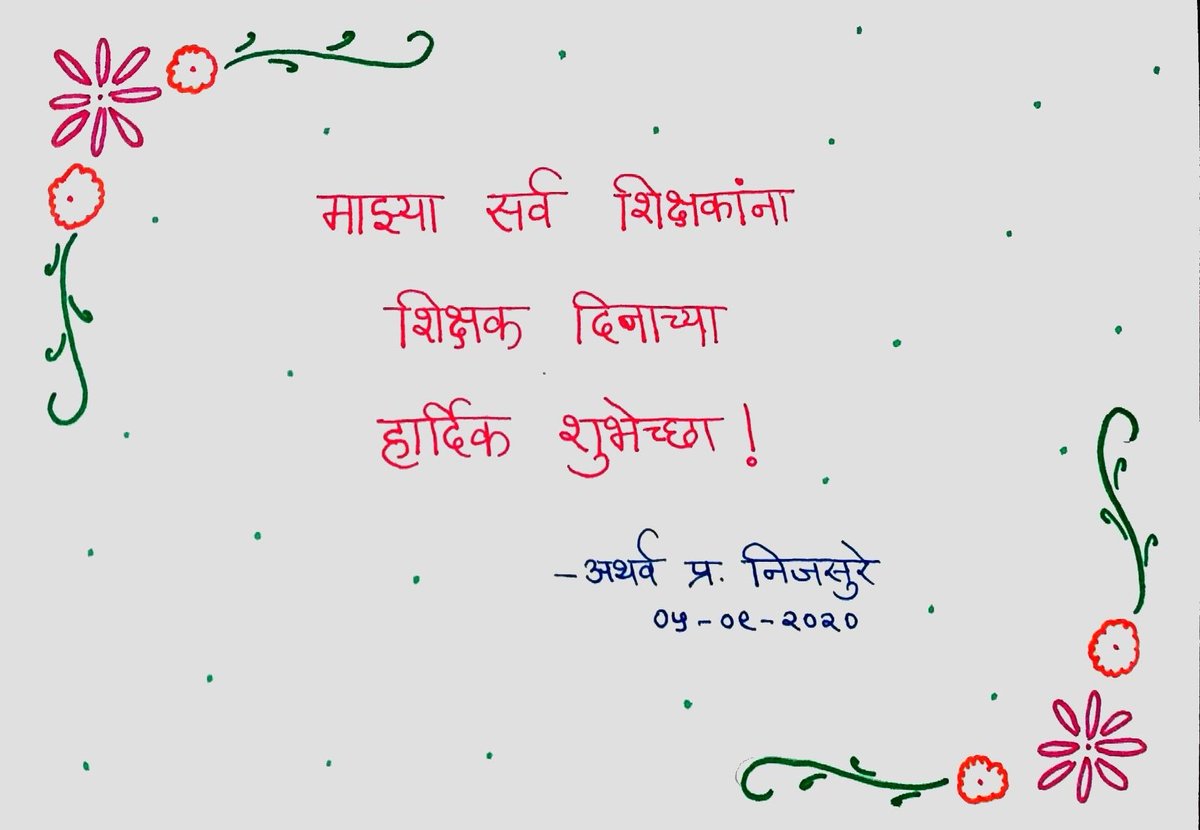 माझ्या सर्व शिक्षकांना
शिक्षक दिनाच्या
हार्दिक शुभेच्छा !
– अथर्व प्र. निजसुरे
०५-०९-२०२०